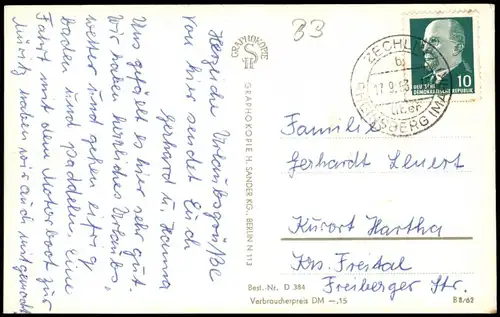 83
Herzliche Urlaubsgrüße
von hier sendet Euch
Gerhard u. Hanna
Uns gefällt es hier sehr gut
Wir haben herrliches Urlaubs-
wetter und gehen eifrig
baden und paddeln. Eine
Fahrt mit dem Motorboot zur
Müritz haben wir auch mitgemacht
GRAPHOKOPIE
GRAPHOKOPIE H. SANDER KG., BERLIN N 113
ZECHLIN
über
RHEINSBERG (MARK)
DEUTSCHE
DEMOKRATISCHE REPUBLIK
10
Familie
Gerhardt Lenert
Kurort Hartha
Krs. Freital
Freiberger Str.
Best.-Nr. D 384
Verbraucherpreis DM —,15
B 8/62